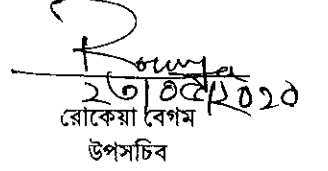 ২৩/০৫/২০২০
রোকেয়া বেগম
উপসচিব